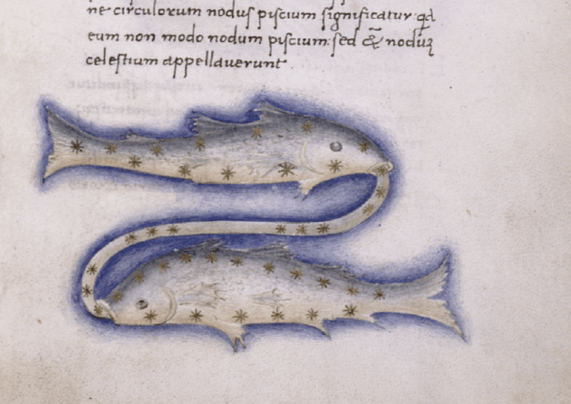 ne circulorum nodus piscium significatur qđ
eum non modo nodum piscium sed & noduʒ
celestium appellauerunt.